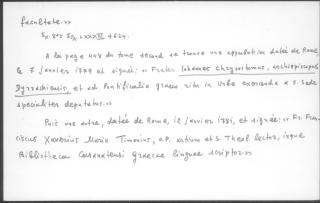 facultate.»
En. 8°3 LXXXVI 4624.
A la page 448 du tome second se trouve une approbation datée de Rome,
le 7 janvier 1779 et signée: « Frater Iohannes Chrysostomus, archiepiscopus
Dyrrachiensis, et ad Pontificalia graeco ritu in Urbe exercenda a S. Sede
specialiter deputatus.»
Puis une autre, datée de Rome, 12 janvier 1781, et signée: « Fr. Fran-
ciscus Xaverius Maria, a.p. et S. Theol. lector, inque
Bibliotheca Casanatensi Graecae linguae scriptor.»